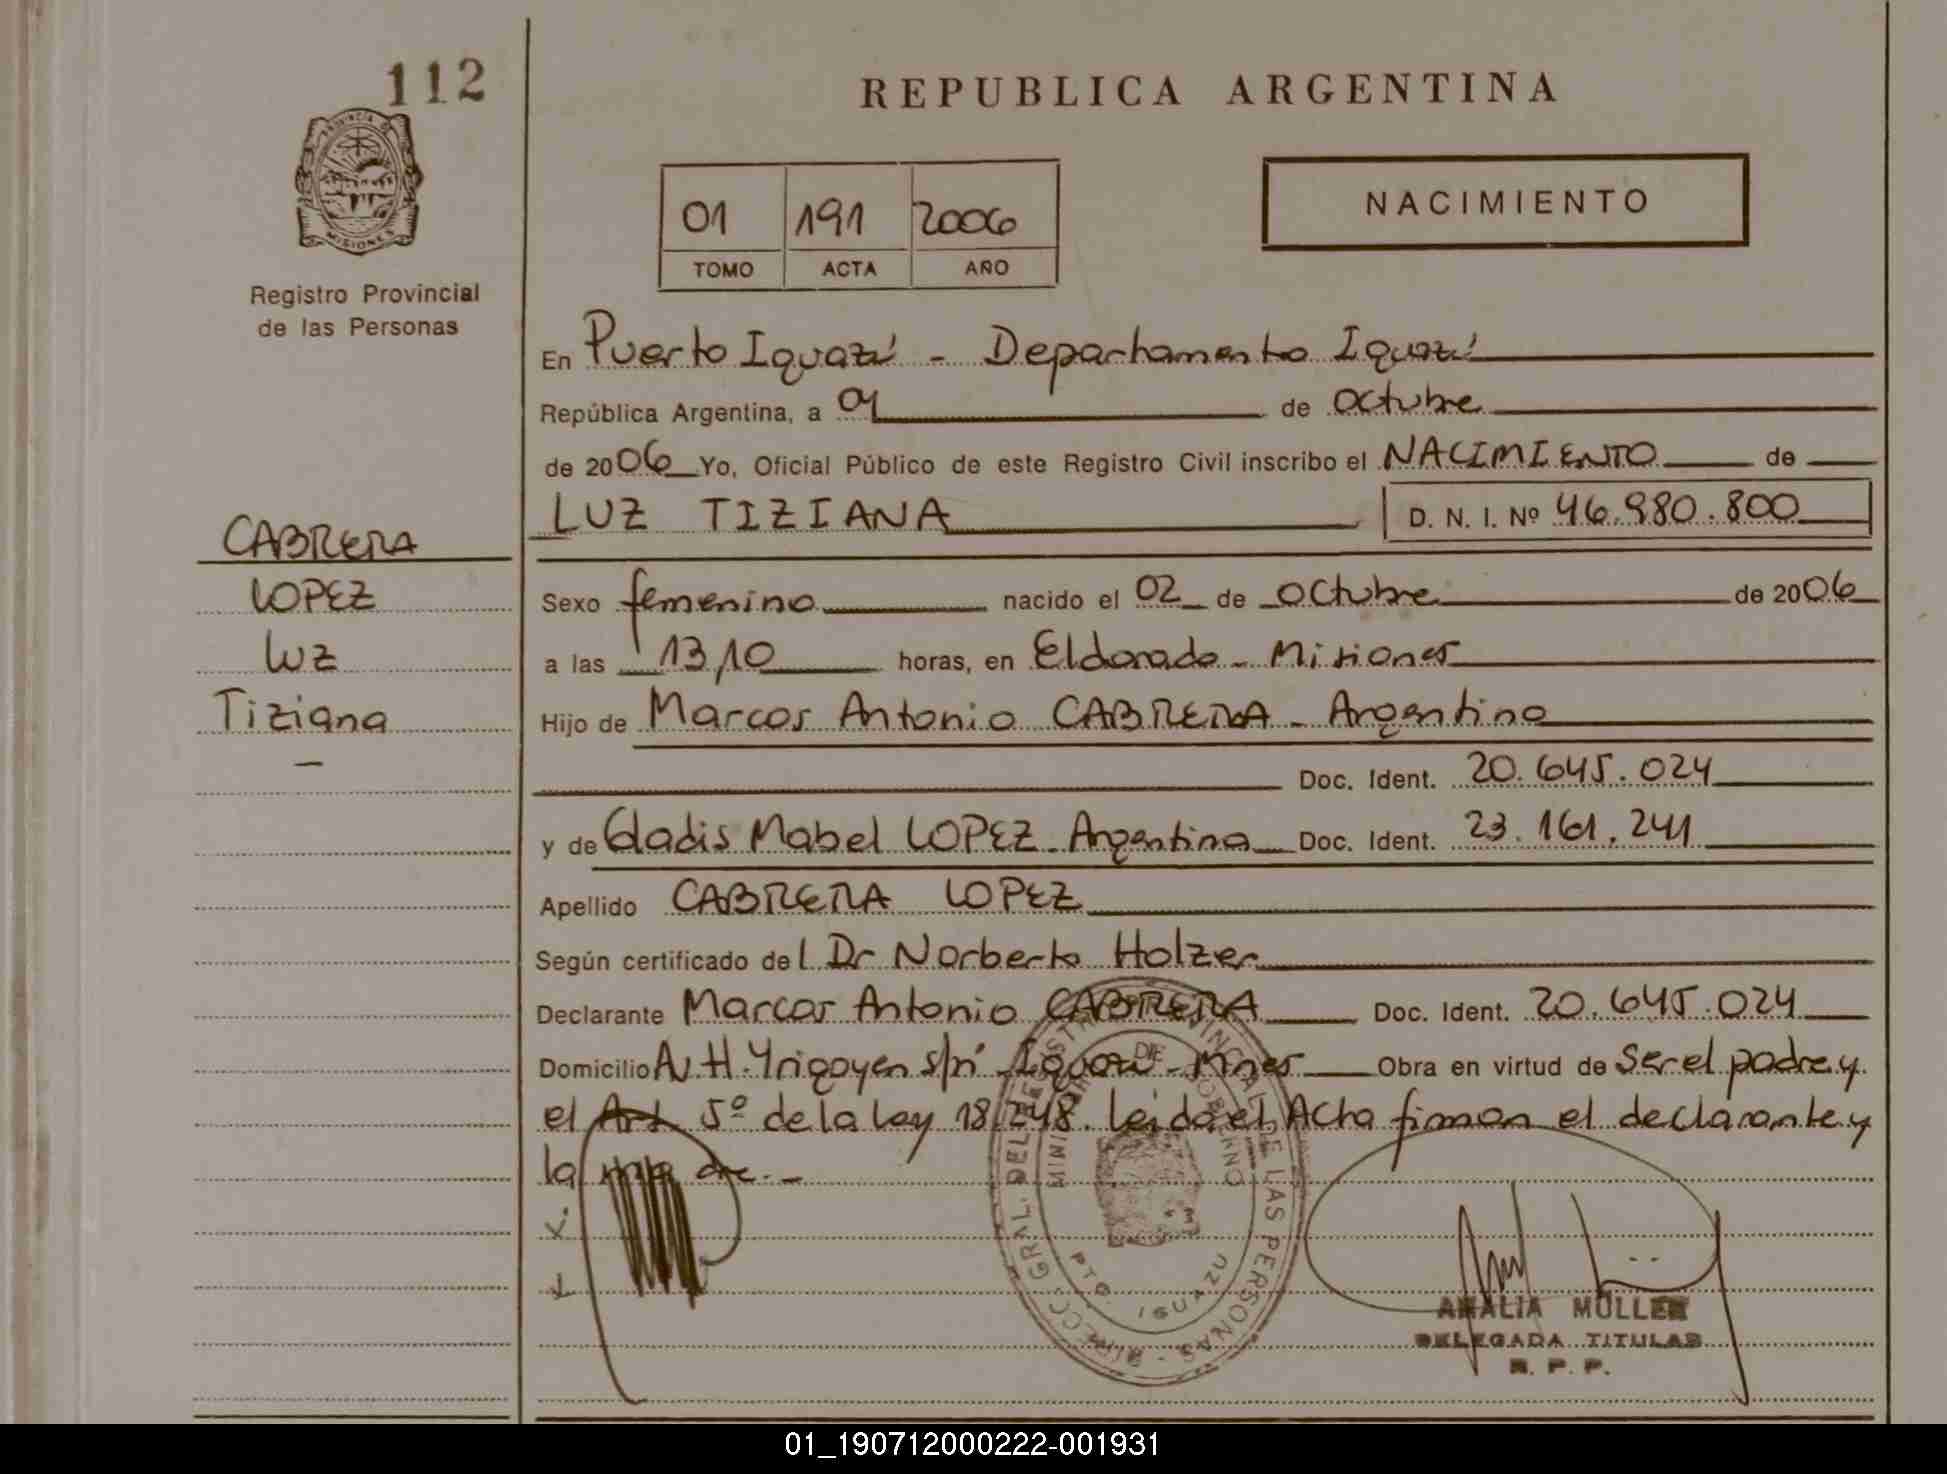 112
PROVINCIA DE
MISIONES
Registro Provincial
de las Personas
REPUBLICA ARGENTINA
01 191 2006
TOMO ACTA AÑO
NACIMIENTO
En Puerto Iguazú - Departamento Iguazú
República Argentina, a 09 de octubre
de 2006 Yo, Oficial Público de este Registro Civil inscribo el NACIMIENTO de
LUZ TIZIANA D. N. I. Nº 46.980.800
CABRERA
LOPEZ
Luz
Tiziana
Sexo femenino nacido el 02 de octubre de 2006
a las 13,10 horas, en Eldorado - Misiones
Hijo de Marcos Antonio CABRERA - Argentino
Doc. Ident. 20.645.024
y de Gladis Mabel LOPEZ - Argentina Doc. Ident. 23.161.241
Apellido CABRERA LOPEZ
Según certificado del Dr Norberto Holzer
Declarante Marcos Antonio CABRERA Doc. Ident. 20.645.024
Domicilio Av H. Yrigoyen s/n Iguazú - Mnes Obra en virtud de Ser el padre y
el Art 5º de la Ley 18.248. Leida el Acta firman el declarante y
la madre.-
DIRECC. GRAL. DEL REGISTRO PROVINCIAL DE LAS PERSONAS
MINISTERIO DE GOBIERNO
PTO. IGUAZU
AMALIA MÜLLER
DELEGADA TITULAR
R. P. P.
01_190712000222-001931